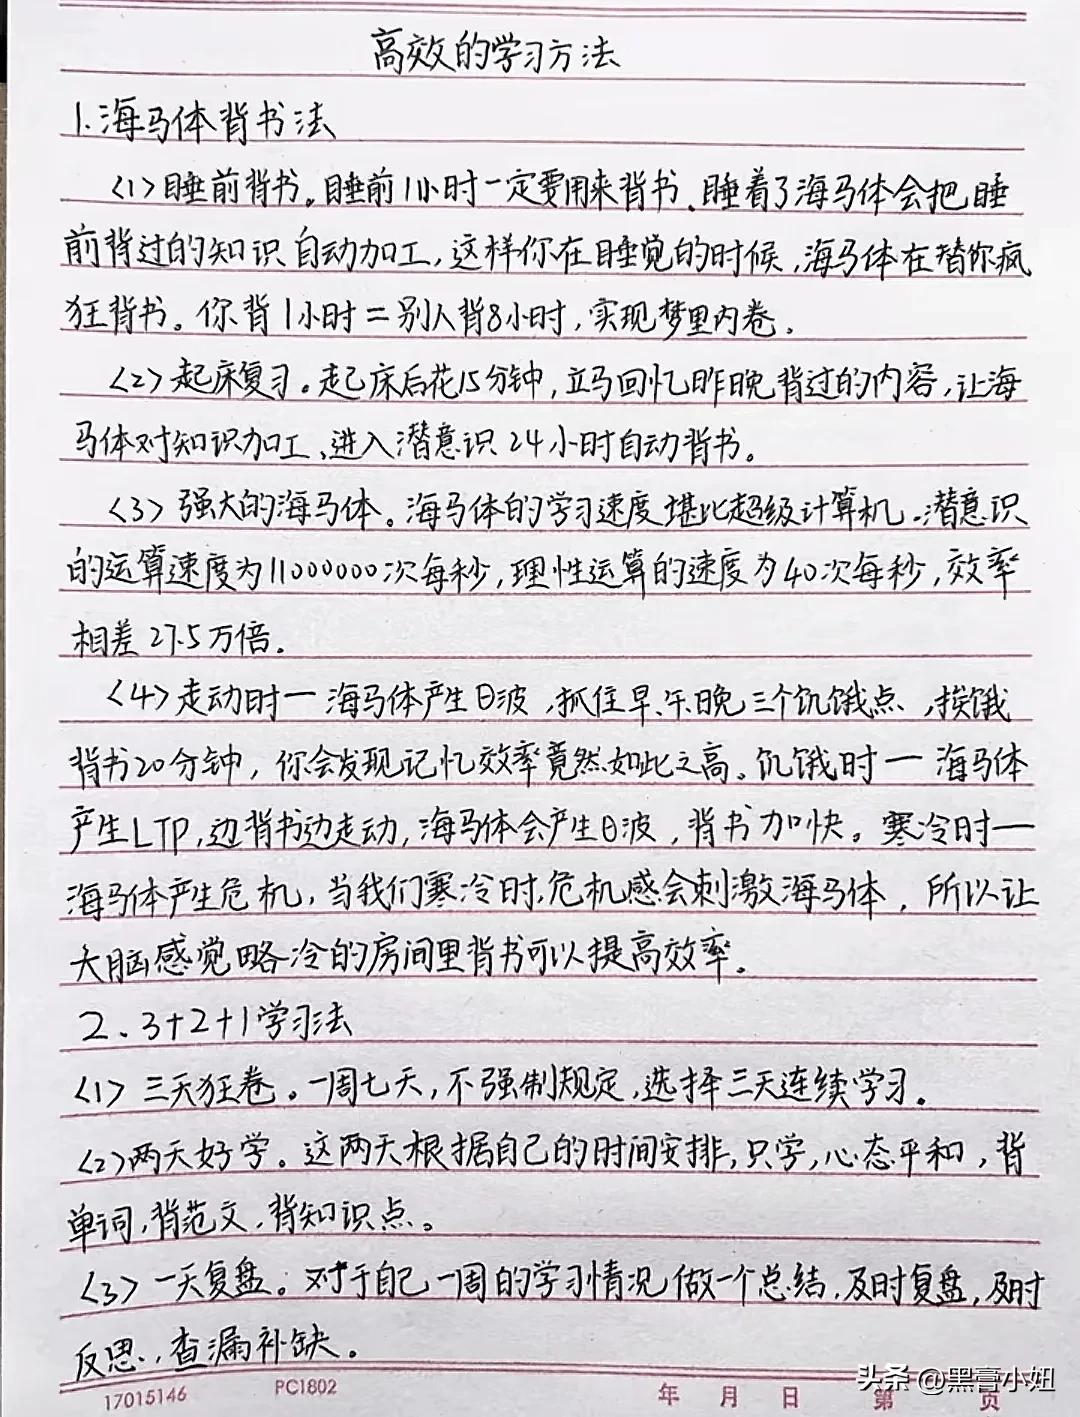 高效的学习方法
1.海马体背书法
<1>睡前背书。睡前1小时一定要用来背书.睡着了海马体会把睡
前背过的知识自动加工,这样你在睡觉的时候,海马体在替你疯
狂背书。你背1小时=别人背8小时,实现梦里内卷.
<2>起床复习。起床后花15分钟,立马回忆昨晚背过的内容,让海
马体对知识加工、进入潜意识24小时自动背书。
<3>强大的海马体。海马体的学习速度堪比超级计算机.潜意识
的运算速度为11000000次每秒,理性运算的速度为40次每秒,效率
相差27.5万倍.
<4>走动时一海马体产生θ波,抓住早、午、晚三个饥饿点,挨饿
背书20分钟,你会发现记忆效率竟然如此之高。饥饿时一海马体
产生LTP,边背书边走动,海马体会产生θ波,背书加快。寒冷时一
海马体产生危机,当我们寒冷时,危机感会刺激海马体,所以让
大脑感觉略冷的房间里背书可以提高效率.
2、3+2+1学习法
<1>三天狂卷。一周七天,不强制规定,选择三天连续学习.
<2>两天好学。这两天根据自己的时间安排,只学,心态平和,背
单词,背范文,背知识点。
<3>一天复盘。对于自己一周的学习情况做一个总结,及时复盘,及时
反思.,查漏补缺。
17015146 PC1802 年 月 日 第 页
头条 @黑膏小妞